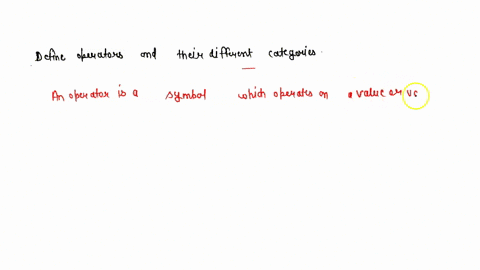 Define operators and their different categories.
An operator is a symbol which operates on a value or va